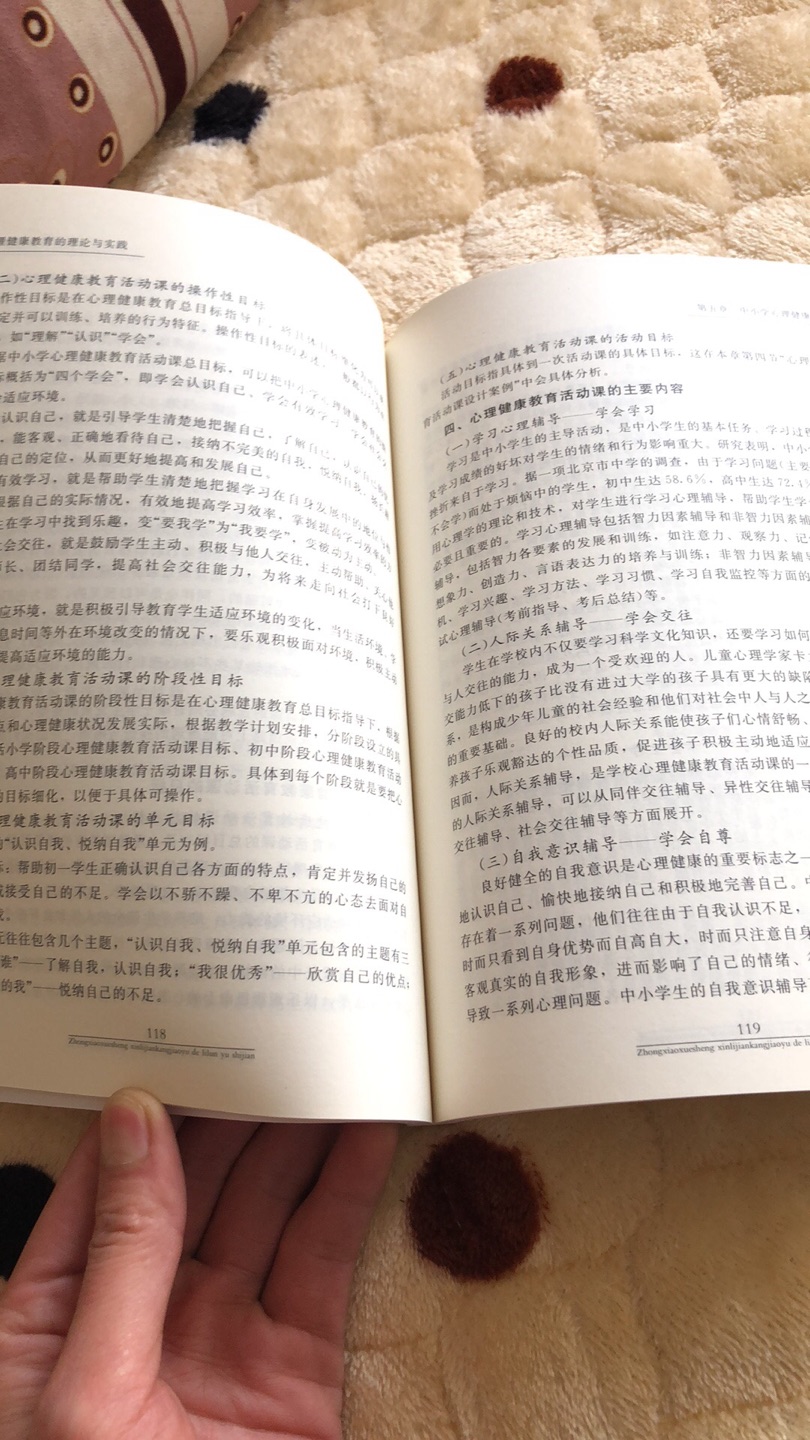 理健康教育的理论与实践
二)心理健康教育活动课的操作性目标
作性目标是在心理健康教育总目标指导下，将具体目标
定并可以训练、培养的行为特征。操作性目标的表述
，如“理解”“认识”“学会”。
据中小学心理健康教育活动课总目标，可以把中小学心理健康教育
标概括为“四个学会”，即学会认识自己，学会有效学习，学会社会交
适应环境。
认识自己，就是引导学生清楚地把握自己，了解自己，认识自己的
，能客观、正确地看待自己，接纳不完美的自我，悦纳自我，
自己的定位，从而更好地提高和发展自己。
有效学习，就是帮助学生清楚地把握学习在自身发展中的地位
根据自己的实际情况，有效地提高学习效率，掌握提高学习效率的
生在学习中找到乐趣，变“要我学”为“我要学”，变被动为主动。
社会交往，就是鼓励学生主动、积极与他人交往，主动帮助、关心他
师长、团结同学，提高社会交往能力，为将来走向社会打下良好
应环境，就是积极引导教育学生适应环境的变化，当生活环境、学
息时间等外在环境改变的情况下，要乐观积极面对环境，积极主动
提高适应环境的能力。
理健康教育活动课的阶段性目标
康教育活动课的阶段性目标是在心理健康教育总目标指导下，根据
点和心理健康状况发展实际，根据教学计划安排，分阶段设立的具
括小学阶段心理健康教育活动课目标、初中阶段心理健康教育活动
、高中阶段心理健康教育活动课目标。具体到每个阶段就是要把心
的目标细化，以便于具体可操作。
理健康教育活动课的单元目标
的“认识自我、悦纳自我”单元为例。
标：帮助初一学生正确认识自己各方面的特点，肯定并发扬自己的
或接受自己的不足。学会以不骄不躁、不卑不亢的心态去面对自
我。
元往往包含几个主题，“认识自我、悦纳自我”单元包含的主题有三
谁”——了解自我，认识自我；“我很优秀”——欣赏自己的优点；
的我”——悦纳自己的不足。
118
Zhongxiaoxuesheng xinlijiankangjiaoyu de lilun yu shijian
第五章 中小学心理健康
(五)心理健康教育活动课的活动目标
活动目标指具体到一次活动课的具体目标，这在本章第四节“心理
育活动课设计案例”中会具体分析。
四、心理健康教育活动课的主要内容
(一)学习心理辅导——学会学习
学习是中小学生的主导活动，是中小学生的基本任务。学习过程
及学习成绩的好坏对学生的情绪和行为影响重大。研究表明，中小学
挫折来自于学习。据一项北京市中学的调查，由于学习问题(主要
不会学)而处于烦恼中的学生，初中生达58.6%，高中生达72.1%
用心理学的理论和技术，对学生进行学习心理辅导，帮助学生学
必要且重要的。学习心理辅导包括智力因素辅导和非智力因素
辅导，包括智力各要素的发展和训练，如注意力、观察力、记
想象力、创造力、言语表达力的培养与训练；非智力因素辅
机、学习兴趣、学习方法、学习习惯、学习自我监控等方面的
试心理辅导(考前指导、考后总结)等。
(二)人际关系辅导——学会交往
学生在学校内不仅要学习科学文化知识，还要学习如何
与人交往的能力，成为一个受欢迎的人。儿童心理学家卡
交能力低下的孩子比没有进过大学的孩子具有更大的缺陷
系，是构成少年儿童的社会经验和他们对社会中人与人之
的重要基础。良好的校内人际关系能使孩子们心情舒畅、
养孩子乐观豁达的个性品质，促进孩子积极主动地适应
因而，人际关系辅导，是学校心理健康教育活动课的一
的人际关系辅导，可以从同伴交往辅导、异性交往辅导
交往辅导、社会交往辅导等方面展开。
(三)自我意识辅导——学会自尊
良好健全的自我意识是心理健康的重要标志之一
地认识自己、愉快地接纳自己和积极地完善自己。中
存在着一系列问题，他们往往由于自我认识不足，
时而只看到自身优势而自高自大，时而只注意自身
客观真实的自我形象，进而影响了自己的情绪、
导致一系列心理问题。中小学生的自我意识辅导
119
Zhongxiaoxuesheng xinlijiankangjiaoyu de li